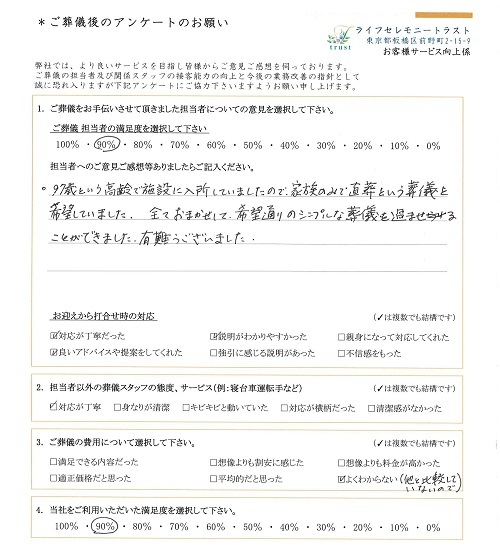 ＊ご葬儀後のアンケートのお願い
trust
ライフセレモニートラスト
東京都板橋区前野町2-15-9
お客様サービス向上係
弊社では、より良いサービスを目指し皆様からご意見ご感想を伺っております。
ご葬儀の担当者及び関係スタッフの接客能力の向上と今後の業務改善の指針として
誠に恐れ入りますが下記アンケートにご協力下さいますようお願い申し上げます。
1. ご葬儀をお手伝いさせて頂きました担当者についての意見を選択して下さい。
ご葬儀 担当者の満足度を選択して下さい
100% ・ 90% ・ 80% ・ 70% ・ 60% ・ 50% ・ 40% ・ 30% ・ 20% ・ 10% ・ 0%
担当者へのご意見ご感想等ありましたらご記入ください。
○ 97歳という高齢で施設に入所していましたので、家族のみで直葬という葬儀を
希望していました。全ておまかせして、希望通りのシンプルな葬儀を過ませる
ことができました。有難うございました。
お迎えから打合せ時の対応 (✓は複数でも結構です)
☑対応が丁寧だった ☑説明がわかりやすかった □親身になって対応してくれた
☑良いアドバイスや提案をしてくれた □強引に感じる説明があった □不信感をもった
2. 担当者以外の葬儀スタッフの態度、サービス(例:寝台車運転手など) (✓は複数でも結構です)
☑対応が丁寧 □身なりが清潔 □キビキビと動いていた □対応が横柄だった □清潔感がなかった
3. ご葬儀の費用について選択して下さい。 (✓は複数でも結構です)
□満足できる内容だった □想像よりも割安に感じた □想像よりも料金が高かった
□適正価格だと思った □平均的だと思った ☑よくわからない (他と比較して
いないので)
4. 当社をご利用いただいた満足度を選択して下さい。
100% ・ 90% ・ 80% ・ 70% ・ 60% ・ 50% ・ 40% ・ 30% ・ 20% ・ 10% ・ 0%